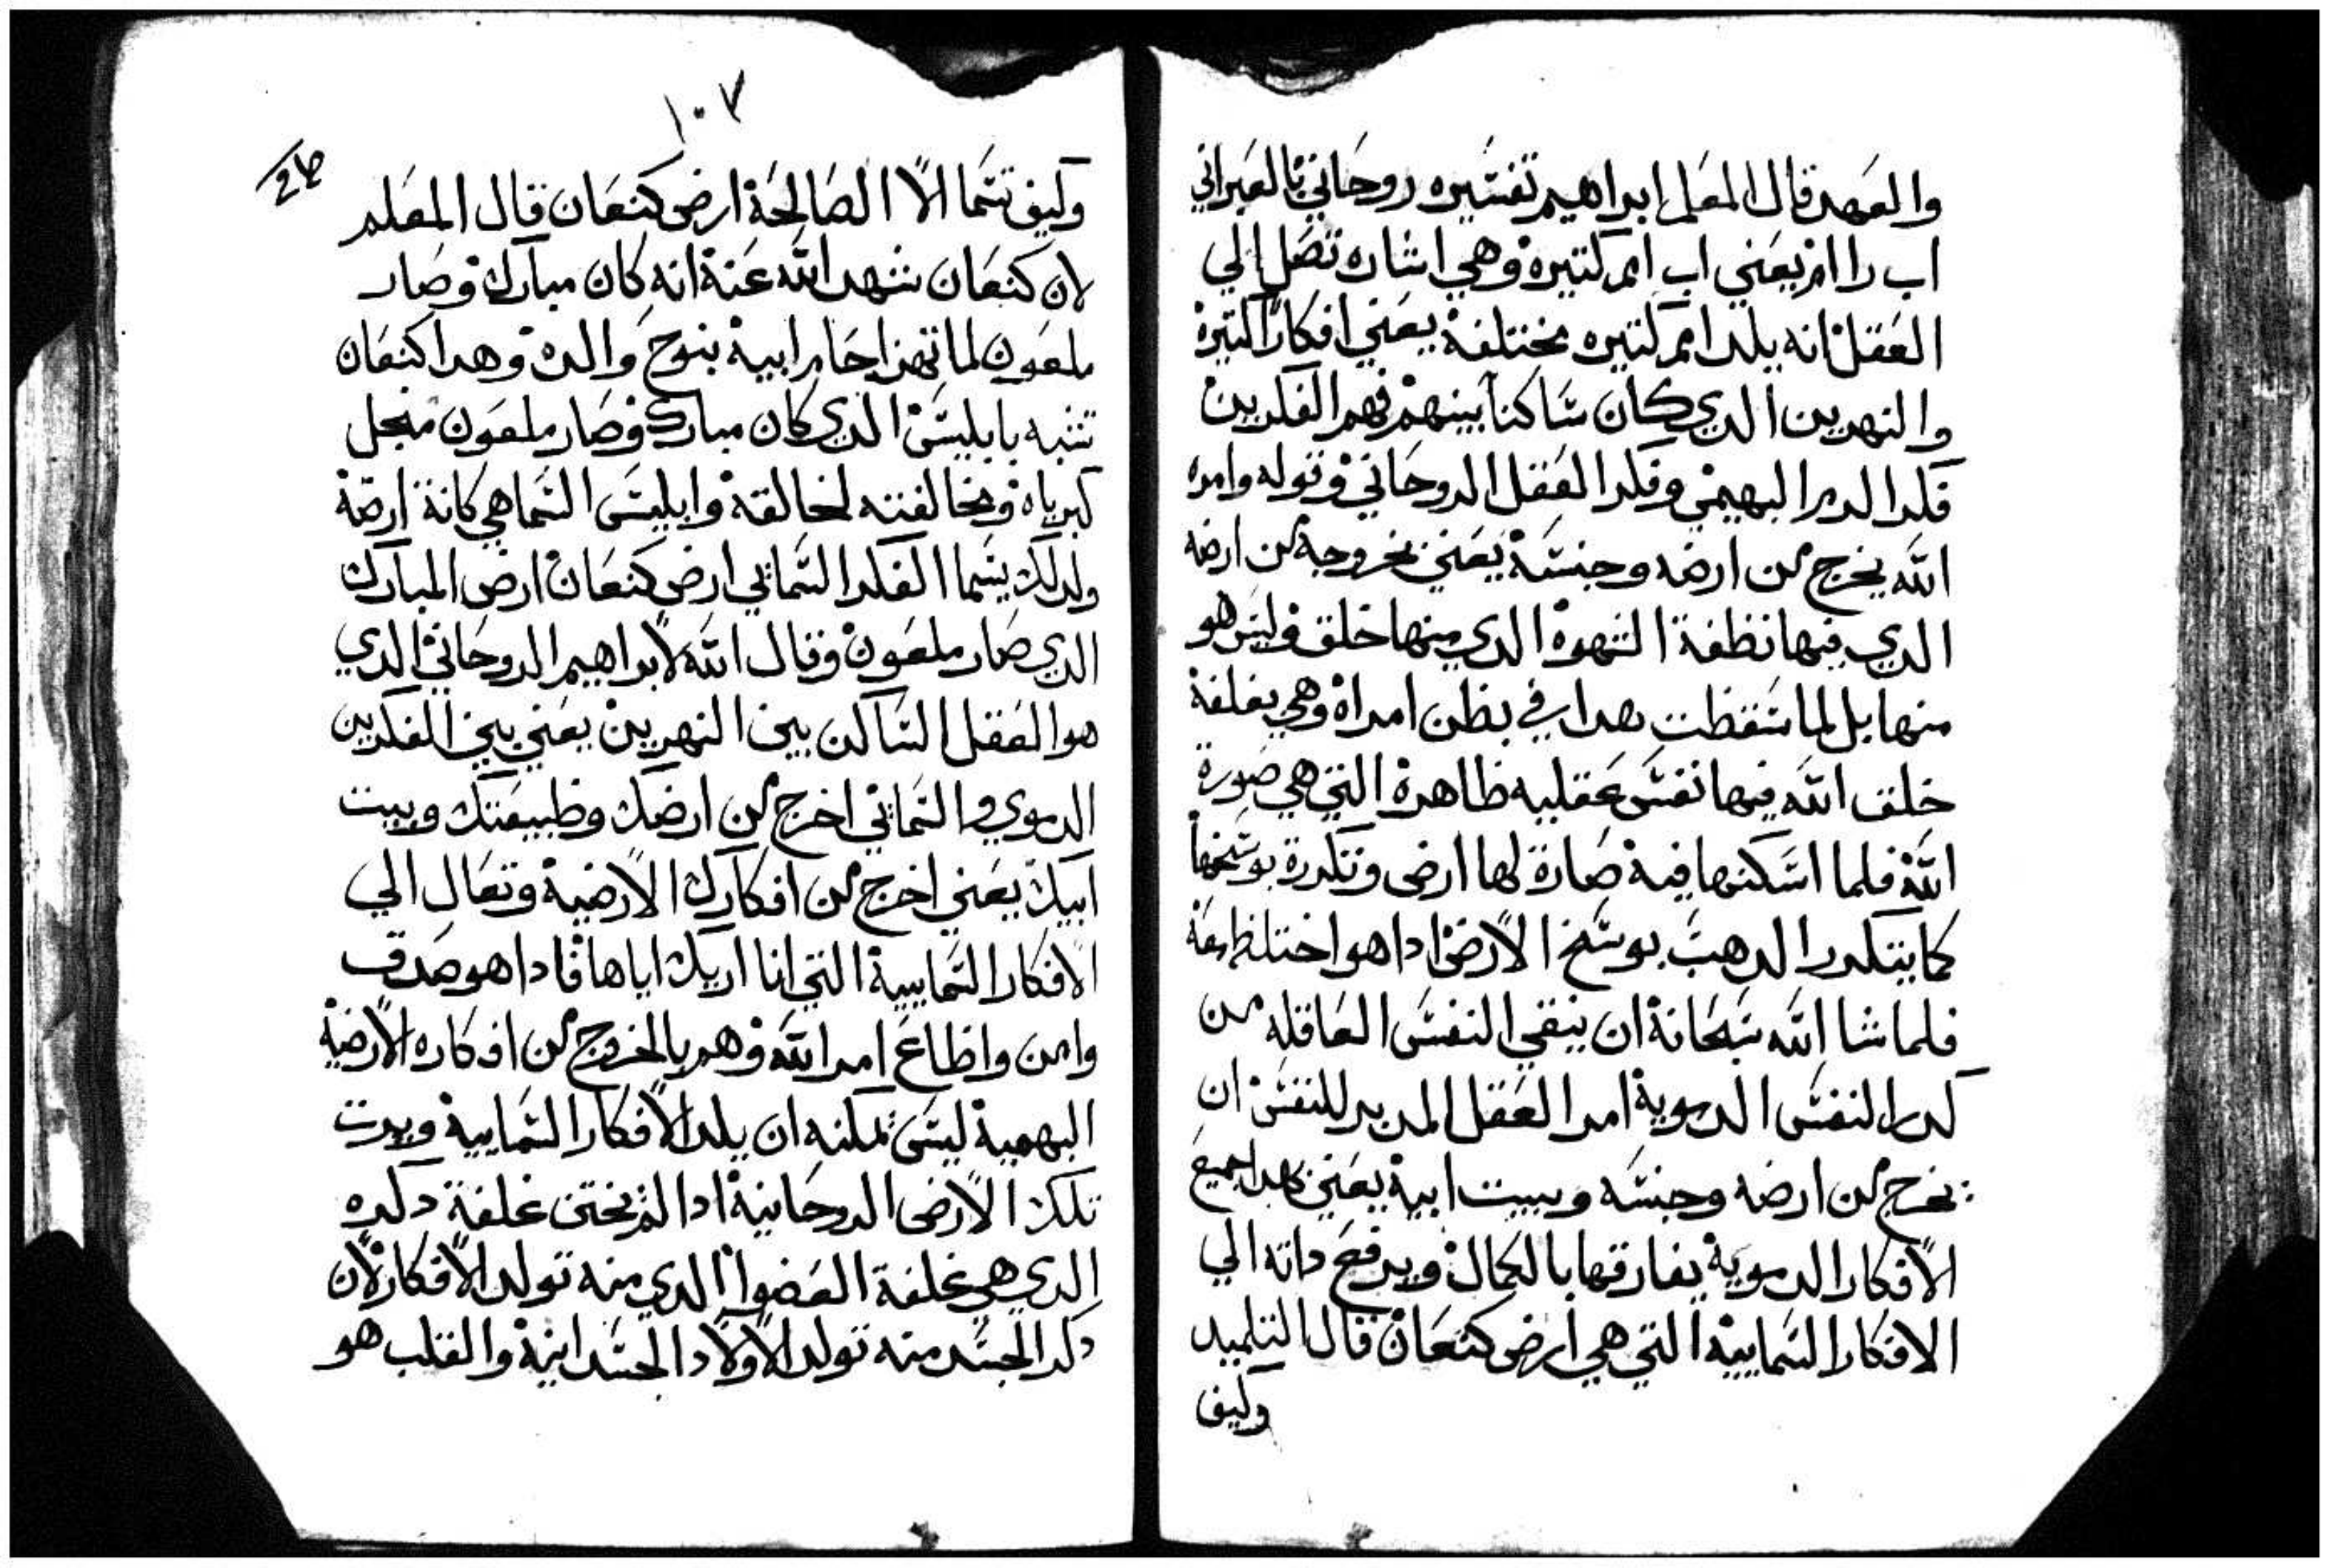 والعهد قال المعلم ابراهيم تفسيره روحاني بالعبراني
اب راام يعني اب امم كتيره وهي اشاره تصل الي
العقل انه يلد امم كتيره مختلفة يعني افكار اكتيرة
والنهرين الدي كان ساكنا بينهم فهم الفكرين
فكر الدم البهيمي وفكر العقل الروحاني وقوله وامره
الله يخرج من ارضه وجنسة يعني بخروجة من ارضه
الدي فيها نطفة الشهوة الدي منها خلق وليس هو
منها بل لما سقطت هدا في بطن امراة وهي بغلفة
خلق الله فيها نفس عقليه طاهرة التي هي صورة
الله فلما اسكنها فية صارة لها ارض وتكدرة بوسخها
كما يتكدر الدهب بوسخ الارض ادا هو اختلط معة
فلما شا الله سبحانة ان ينقي النفس العاقله من
كدر النفس الدموية امر العقل المدبر للنفس ان
يخرج من ارضه وجنسه وبيت ابية يعني بهدا جميع
الافكار الدموية يفارقها بالكمال ويرفع داته الي
الافكار السمايية التي هي ارض كنعان قال التلميد
وكيف
١٠٧
وكيف تسما الا الصالحة ارض كنعان قال المعلم
لان كنعان شهد الله عنة انه كان مبارك وصار
ملعون لما تهزا حام ابية بنوح والدة وهدا كنعان
تشبه بابليس الدي كان مبارك وصار ملعون منجل
كبرياه ومخالفته لخالقة وابليس السما هي كانة ارضة
ولدلك يسما الفكر السماني ارض كنعان ارض المبارك
الدي صار ملعون وقال الله لابراهيم الروحاني الدي
هو العقل الساكن بين النهرين يعني بين الفكرين
الدموي والسماني اخرج من ارضك وطبيعتك وبيت
ابيك يعني اخرج من افكارك الارضية وتعال الي
الافكار السمايية التي انا اريك اياها فادا هو صدق
وامن واطاع امر الله وهم بالخروج من افكاره الارضية
البهمية ليس يمكنه ان يلد الافكار السمايية ويرت
تلك الارض الروحانية ادا لم يختن غلفة دكره
الدي هي غلفة العضوا الدي منه تولد الافكار لان
دكر الجسد منه تولد الاولاد الجسدانية والقلب هو